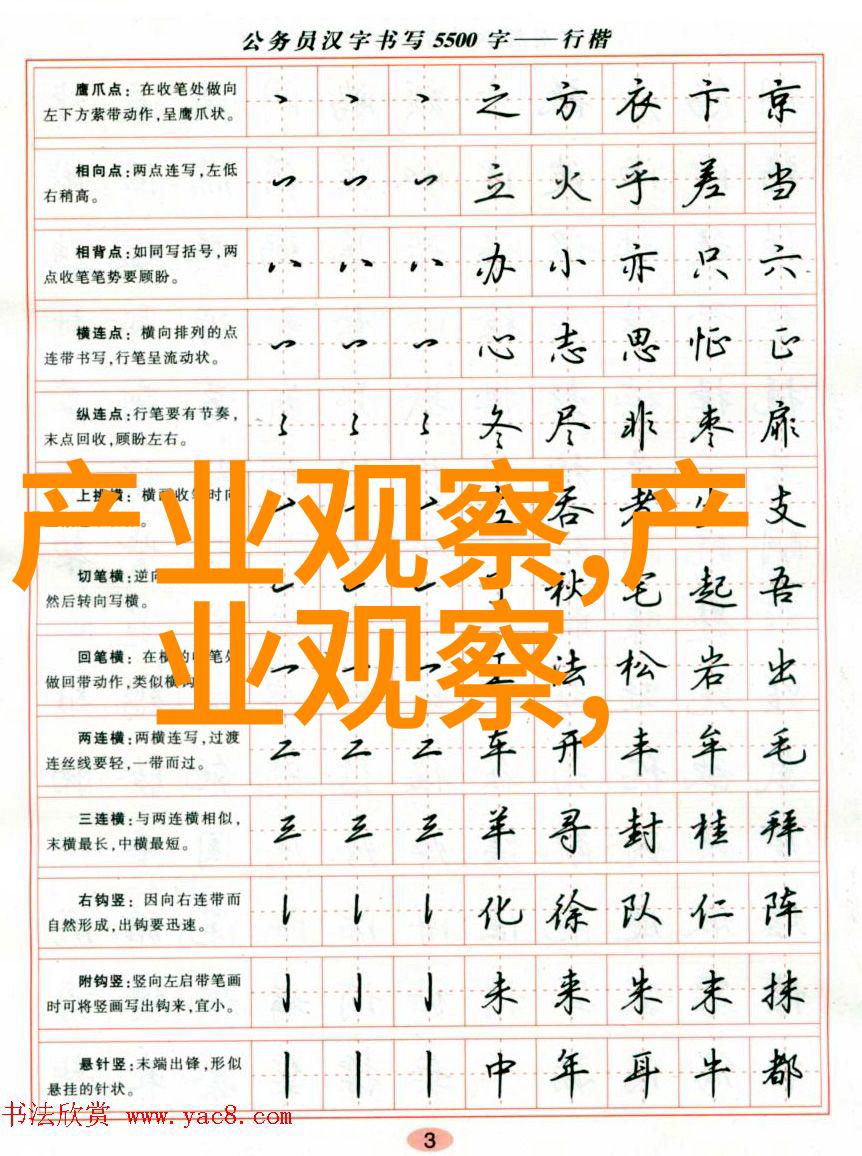 公务员汉字书写5500字——行楷
鹰爪点：在收笔处做向
左下方萦带动作，呈鹰爪状。
之 方 衣 卞 京
相向点：两点连写，左低
右稍高。
立 火 乎 差 当
相背点：如同写括号，两
点收笔笔势要顾盼。
办 小 亦 只 六
横连点：横向排列的点
连带书写，行笔呈流动状。
心 志 思 怔 正
纵连点：行笔要有节奏，
末点回收，顾盼左右。
冬 尽 非 枣 扉
上挑横：横画收笔时向
吞 者 生 支
产业观察,产
切笔横：逆向
然后转向写横。
秋 宅 起 吾
回笔横：在横的收笔处
做回带动作，类似横钩
法 松 岩 出
业观察,
两连横：两横连写，过渡
连丝线要轻，一带而过。
二 二 二 车 开 丰 牟 毛
三连横：与两连横相似，
末横最长，中横最短。
三 三 三 羊 寻 封 桂 拜
右钩竖：因向右连带而
自然形成，出钩要迅速。
化 徐 队 仁 阵
附钩竖：竖向左启带笔画
时可将竖画写出钩来，宜小。
未 来 朱 末 抹
悬针竖：末端出锋，形似
悬挂的针状。
中 年 耳 牛 都
书法欣赏 www.yac8.com
3